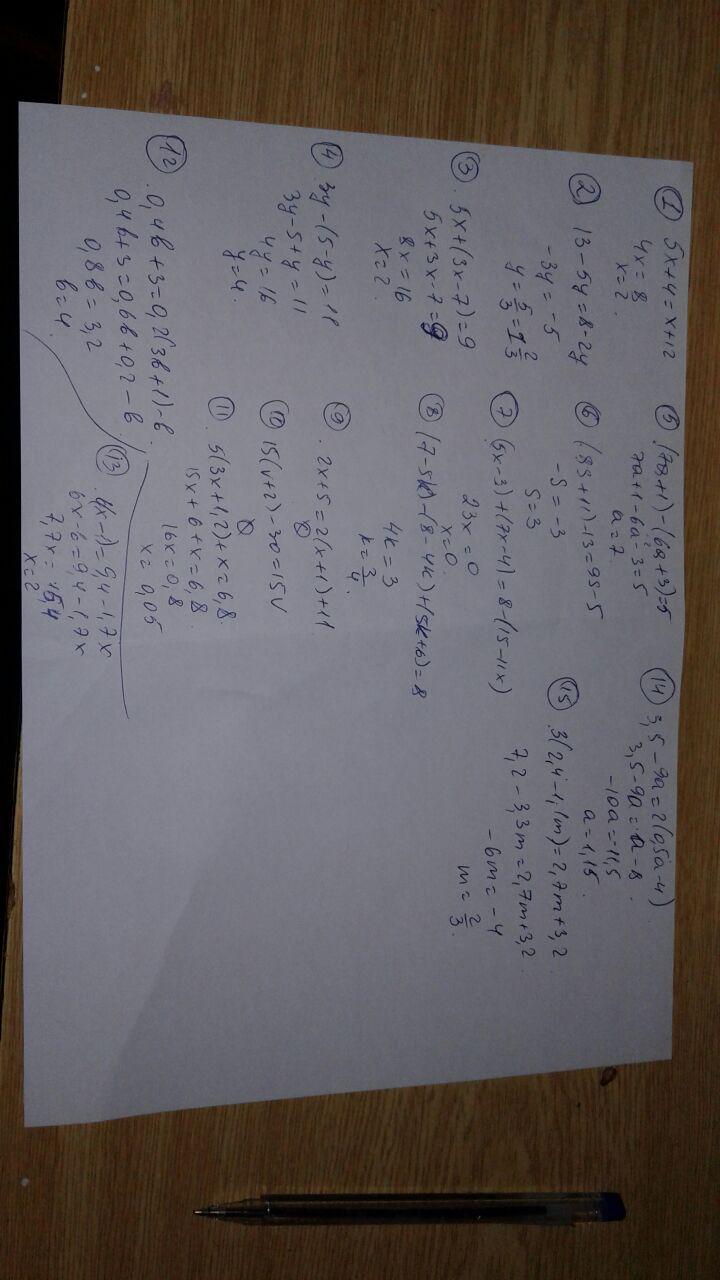 ① 5x+4=x+12
4x=8
x=2.
② 13-5y=8-2y
-3y=-5
y=5/3=1 2/3
③ 5x+(3x-7)=9
5x+3x-7=9
8x=16
x=2.
④ 3y-(5-y)=11
3y-5+y=11
4y=16
y=4.
⑤ (7a+1)-(6a+3)=5
7a+1-6a-3=5
a=7
⑥ (8s+11)-13=9s-5
-s=-3
s=3
⑦ (5x-3)+(7x-4)=8-(15-11x)
23x=0
x=0.
⑧ (7-5k)-(8-4k)+(5k+6)=8
4k=3
k=3/4.
⑨ 2x+5=2(x+1)+11
⑩ 15(v+2)-30=15v
⑪ 5(3x+1,2)+x=6,8
15x+6+x=6,8
16x=0,8
x=0,05
⑫ 0,4b+3=0,2(3b+1)-b
0,4b+3=0,6b+0,2-b
0,8b=3,2
b=4.
⑬ 6(x-1)=9,4-1,7x
6x-6=9,4-1,7x
7,7x=15,4
x=2
⑭ 3,5-9a=2(0,5a-4)
3,5-9a=a-8
-10a=-11,5
a=1,15
⑮ 3(2,4-1,1m)=2,7m+3,2
7,2-3,3m=2,7m+3,2
-6m=-4
m=2/3.